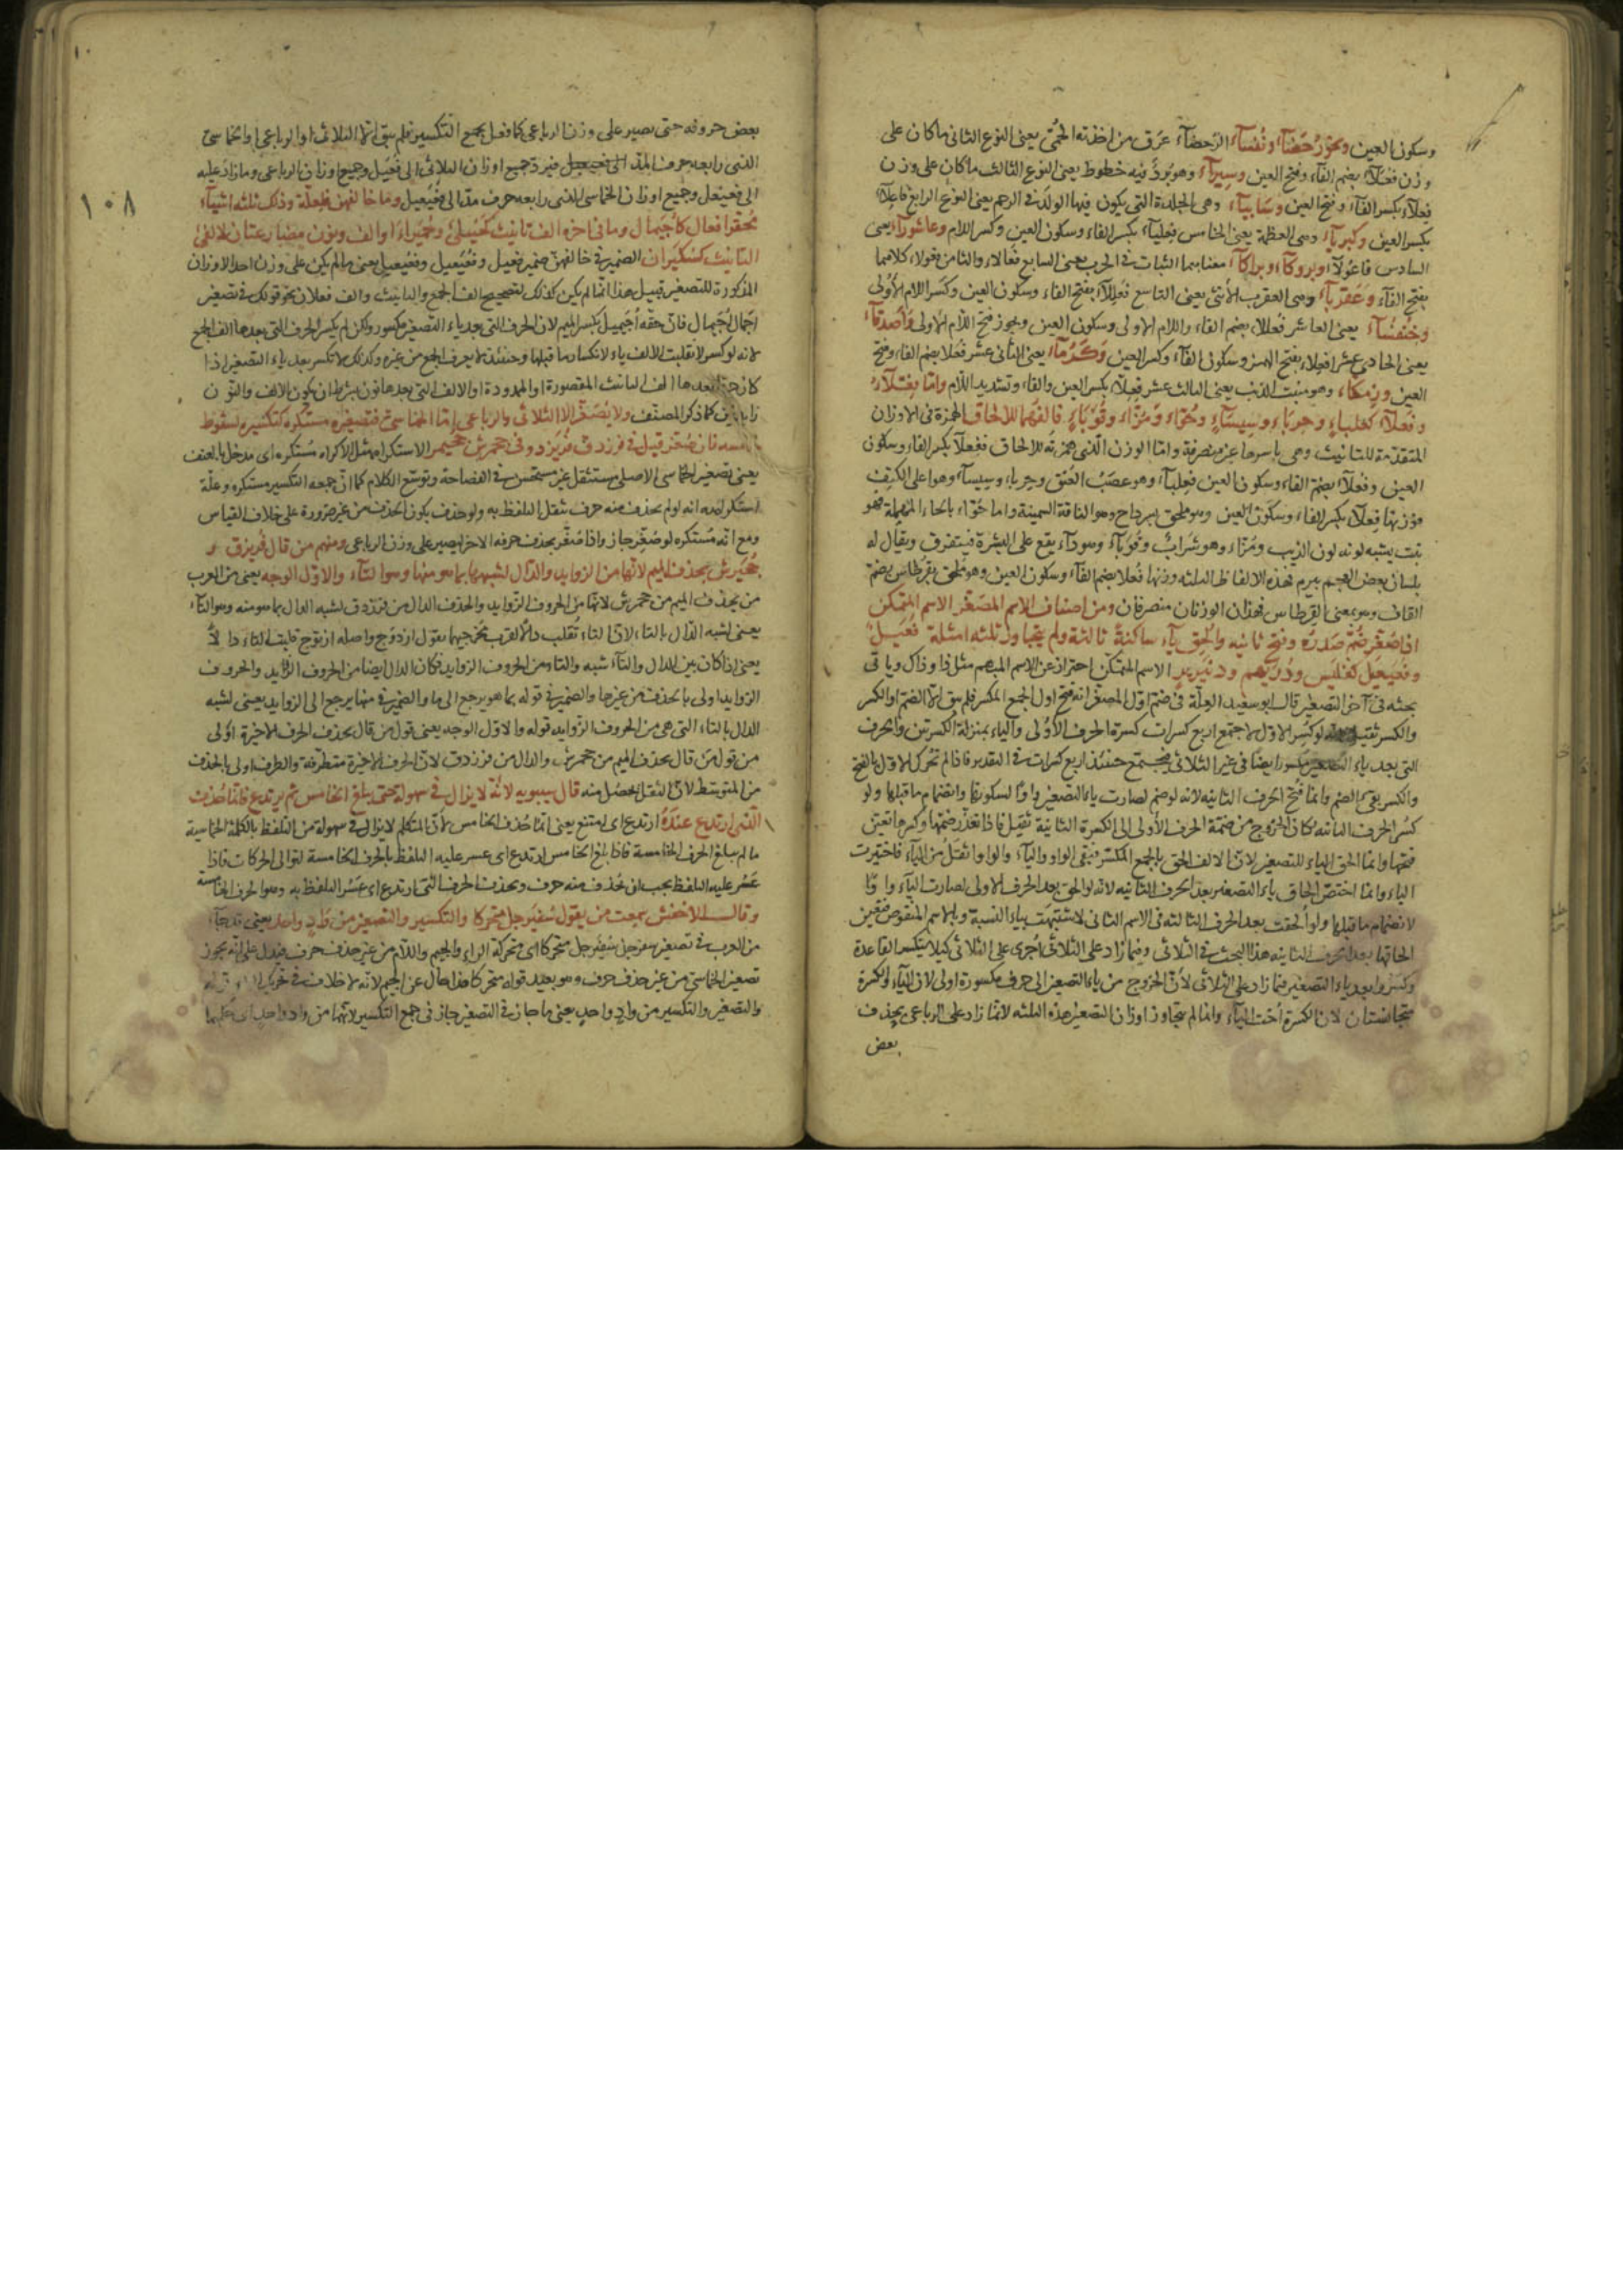 وسكون العين ونحو رُحَضَآء ونُفَسآء الرّحضآء عَرَق من اخذته الحُمّى يعنى النوع الثانى ما كان على
وزن فعلآء بضم الفآء وفتح العين وسِيَرآء وهو بُردٌ فيه خطوط يعنى النوع الثالث ما كان على وزن
فعلآء بكسر الفآء وفتح العين وسَابِيَآء وهى الجلدة التى يكون فيها الولد فى الرحم يعنى النوع الرابع فاعِلآء
بكسر العين وكبرِيآء وهى العظمة يعنى الخامس فعلياء بكسر الفاء وسكون العين وكسر اللام وعاشورآء يعنى
السادس فاعُولآء وبروكآء وبراكآء معناهما الثبات فى الحرب يعنى السابع فعالاء والثامن فعولاء كلاهما
بفتح الفآء وعَقرَبآء وهى العقرب الأنثى يعنى التاسع فعللآء بفتح الفاء وسكون العين وكسر اللام الأولى
وخُنفسُآء يعنى العاشر فُعللاء بضم الفاء واللام الاولى وسكون العين ويجوز فتح اللام الاولى وأصدقآء
يعنى الحادى عشر افعِلاء بفتح الهمز وسكون الفآء وكسر العين وكَرُمآء يعنى الثانى عشر فُعَلا بضم الفاء وفتح
العين وزمكاء وهو منبت الذنب يعنى الثالث عشر فعِلاّء بكسر العين والفاء وتشديد اللام وامّا فِعْلآءُ
وفُعلآء كعلباءٍ وحرباءٍ وسِيسَآءٍ وحُوّاء ومُزّاء وقُوبَاءٍ فالفها للالحاق الهمزة فى الاوزان
المتقدّمة للتانيث وهى باسرها غير منصرفة وامّا الوزن الّذى همزته للالحاق ففِعلآء بكسر الفاء وسكون
العين وفُعلآء بضم الفاء وسكون العين فعِلبآء وهو عصَبُ العنق وحرباء وسيسآء وهو اعلى الكتِف
وزنها فِعلآء بكسر الفاء وسكون العين وهو ملحق بسرداح وهو الناقة السمينة واما حُوّاء بالحاء المهملة فهو
نبت يشبه لونه لون الذيب ومُزّاء وهو شرابٌ وقُوبآء وهو دآء يقع على البشرة فيتفرق ويقال له
بلسان بعض العجم بيرم فهذه الالفاظ الثلثه وزنها فُعلا بضم الفآء وسكون العين وهو ملحق بقرطاس بضم
القاف وهو بمعنى القرطاس فهذان الوزنان منصرفان ومن اصناف الاسم المصَغّر الاسم المتمكن
اذا صُغّر ضُمّ صَدرُهُ وفتح ثانيه واُلحِق يآء ساكنةً ثالثة ولم يتجاوز ثلثه امثلة فُعَيلٌ
وفُعَيعِل كفُلَيس ودُرَيهِم ودنينيرٍ الاسم المتمكن احتراز عن الاسم المبهم مثل ذا وذاك وياتى
بحثه فى آخر التصغير قال ابو سعيد العِلّة فى ضم اوّل المصغر انه فتح اول الجمع المكسر فلم يبق الا الضم او الكسر
والكسر ثقيل لوكسر الاول لاجتمع اربع كسرات كسرة الحرف الأولى والياء بمنزلة الكسرتين والحرف
التى بعد ياء التصغير مكسور ايضا فى غير الثلاثى فيجتمع حينئذ اربع كسرات فى التقدير فاذا لم تحرك الاول بالفتح
والكسر بقى الضم وانما فُتح الحرف الثانيه لانه لو ضم لصارت ياء التصغير واوًا لسكونها وانضمام ما قبلها ولو
كسُر الحرف الثانيه لكان الخروج من ضمّة الحرف الأولى الى الكسرة الثانية ثقيل فاذا تعذر ضمّها وكسرها تعيّن
فتحها وانما الحق الياء للتصغير لانّ الالف الحق بالجمع المكسّر فبقى الواو واليآء والواو اثقلُ من اليآء فاختيرت
الياء وانما اختصّ الحاق ياء التصغير بعد الحرف الثانيه لانه لو الحق بعد الحرف الاولى لصارت اليآء واوًا
لانضمام ما قبلها ولو ألحقت بعد الحرف الثالثه فى الاسم الثانى لاشتبهَت بياء النسبة وبالاسم المنقوص فتعيّن
الحاقها بعد الحرف الثانيه هذا البحث فى الثلاثى وفيما زاد على الثلاثى اُجرى على الثلاثى كيلا ينكسر القاعدة
وكسَرُوا بعد ياء التصغير فيما زاد على الثلاثى لأنّ الخروج من ياء التصغير الى حرف مكسورة اولى لان اليآء والكسرة
متجانستان لان الكسرة اخت اليآء وانما لم يتجاوز اوزان التصغير هذه الثلثه لانما زاد على الرباعى يحذف
بعض
١٠٨
بعض حروفه حتى يصير على وزن الرباعى كما فعل بجمع التكسير فلم يبق الا الثلاثى او الرباعى او الخماسى
الذى رابعه حرف المدّ فيرد جميع اوزان الثلاثى الى فُعَيل وجميع اوزان الرباعى وما زاد عليه
الى فعيعل وجميع اوزان الخماسى الذى رابعه حرف مدّ الى فُعَيعيل وما خالفهن فلِعلّة وذلك ثلثه اشيآء
مُحقّر افعال كاُجَيمال وما فى اخره الف تانيث كحُبَيلى وحُمَيراء او الف ونون مضارعتان لالفى
التانيث كسُكَيران الضمير فى خالفهن ضمير فعيل وفُعيعل وفُعيعيل يعنى ما لم يكن على وزن احد الاوزان
المذكورة للتصغير قيل هذا انما لم يكن كذلك لتصحيح الف الجمع والتانيث والف فعلان نحو قولك فى تصغير
اجمال اُجَيمال فانّ حقّه اُجَيميل بكسر الميم لان الحرف التى بعد ياء التصغير مكسور ولكن لم يكسر الحرف التى بعدها الف الجمع
لانه لو كسر لانقلبت الالف ياء لانكسار ما قبلها وحينئذ لا يعرف الجمع من غيره وكذلك لا تكسر بعد ياء التصغير اذا
كان بعدها الف التانيث المقصورة او الممدودة او الالف التى بعدها نون بشرط ان يكون الالف والنّون
زايدتين كما ذكر المصنّف ولا يُصَغّر الا الثلاثى والرباعى وامّا الخماسىّ فتصغيره مستكره كتكسيره لسقوط
خامسه فان صُغّر قيل فى فرزدق فُرَيزد وفى جحمرش جُحَيمر الاستكراه مثل الاكراه مُستكره اى مدخل بالعنف
يعنى تصغير الخماسى الاصلى مستثقل غير مستحسن فى الفصاحة وتوسّع الكلام كما انّ جمعه التكسير مستكره وعلّة
استكراهه انه لو لم يحذف منه حرف ثقل التلفظ به ولو حذف يكون الحذف من غير ضرورة على خلاف القياس
ومع انّه مُستكره لو صُغّر جاز واذا صُغّر يحذف حرفه الاخر ليصير على وزن الرباعى ومنهم من قال فُرَيزق و
جُحَيرش بحذف الميم لانّها من الزوايد والدّال لشبهها بما هو منها وهو التآء والاوّل الوجه يعنى من العرب
من يحذف الميم من جحمرش لانها من الحروف الزوايد والحذف الدال من فرزدق لشبه الدال بما هو منه وهو التآء
يعنى لشبه الدّال بالتاء لانّ التاء تُقلب دالاً لقرب مخرجيهما يقول ازدوج واصله ازتوج قلبت التاء دالاً
يعنى اذا كان بين الدال والتآء شبه والتاء من الحروف الزوايد فكان الدال ايضا من الحروف الزوايد والحروف
الزوايد اولى بالحذف من غيرها والضمير فى قوله بما هو يرجع الى ما والضمير فى منها يرجع الى الزوايد يعنى لشبه
الدال بالتاء التى هى من الحروف الزوايد قوله والاوّل الوجه يعنى قول من قال بحذف الحرف الاخيرة اَولى
من قول مَن قال بحذف الميم من جحمرش والدال من فرزدق لانّ الحرف الاخيرة متطرّفة والطرف اولى بالحذف
من المتوسّط لانّ الثقل يحصل منه قال سيبويه لانّه لا يزال فى سهولة حتى يبلغ الخامس ثم يرتدع فانّما حُذِف
الّذى ارتدع عندَهُ ارتدع اى امتنع يعنى انّما حُذف الخامس لانّ المتكلم لا يزال فى سهولة من التلفظ بالكلمة الخماسية
ما لم يبلغ الحرف الخامسة فاذا بلغ الخامس ارتدع اى عسر عليه التلفظ بالحرف الخامسة لتوالى الحركات فاذا
عَسُر عليه التلفظ يجب ان يُحذف منه حرف ويحذف الحرف التى ارتدع اى عَسُر التلفظ به وهو الحرف الخامسة
وقال الاخفش سمعت من يقول سُفَيرجل متحركا والتكسير والتصغير من وَادٍ واحد يعنى
من العرب فى تصغير سفرجل سُفَيرجل متحركا اى متحركة الراء والجيم واللام من غير حذف حرف فيدل على انّه يجوز
تصغير الخماسى من غير حذف حرف وهو بعيد قوله متحركا هذا حال عن الجيم لانّه لا خلاف فى تحريك
والتصغير والتكسير من وادٍ واحدٍ يعنى ما جاز فى التصغير جاز فى جمع التكسير لانّهما من وادٍ واحدٍ